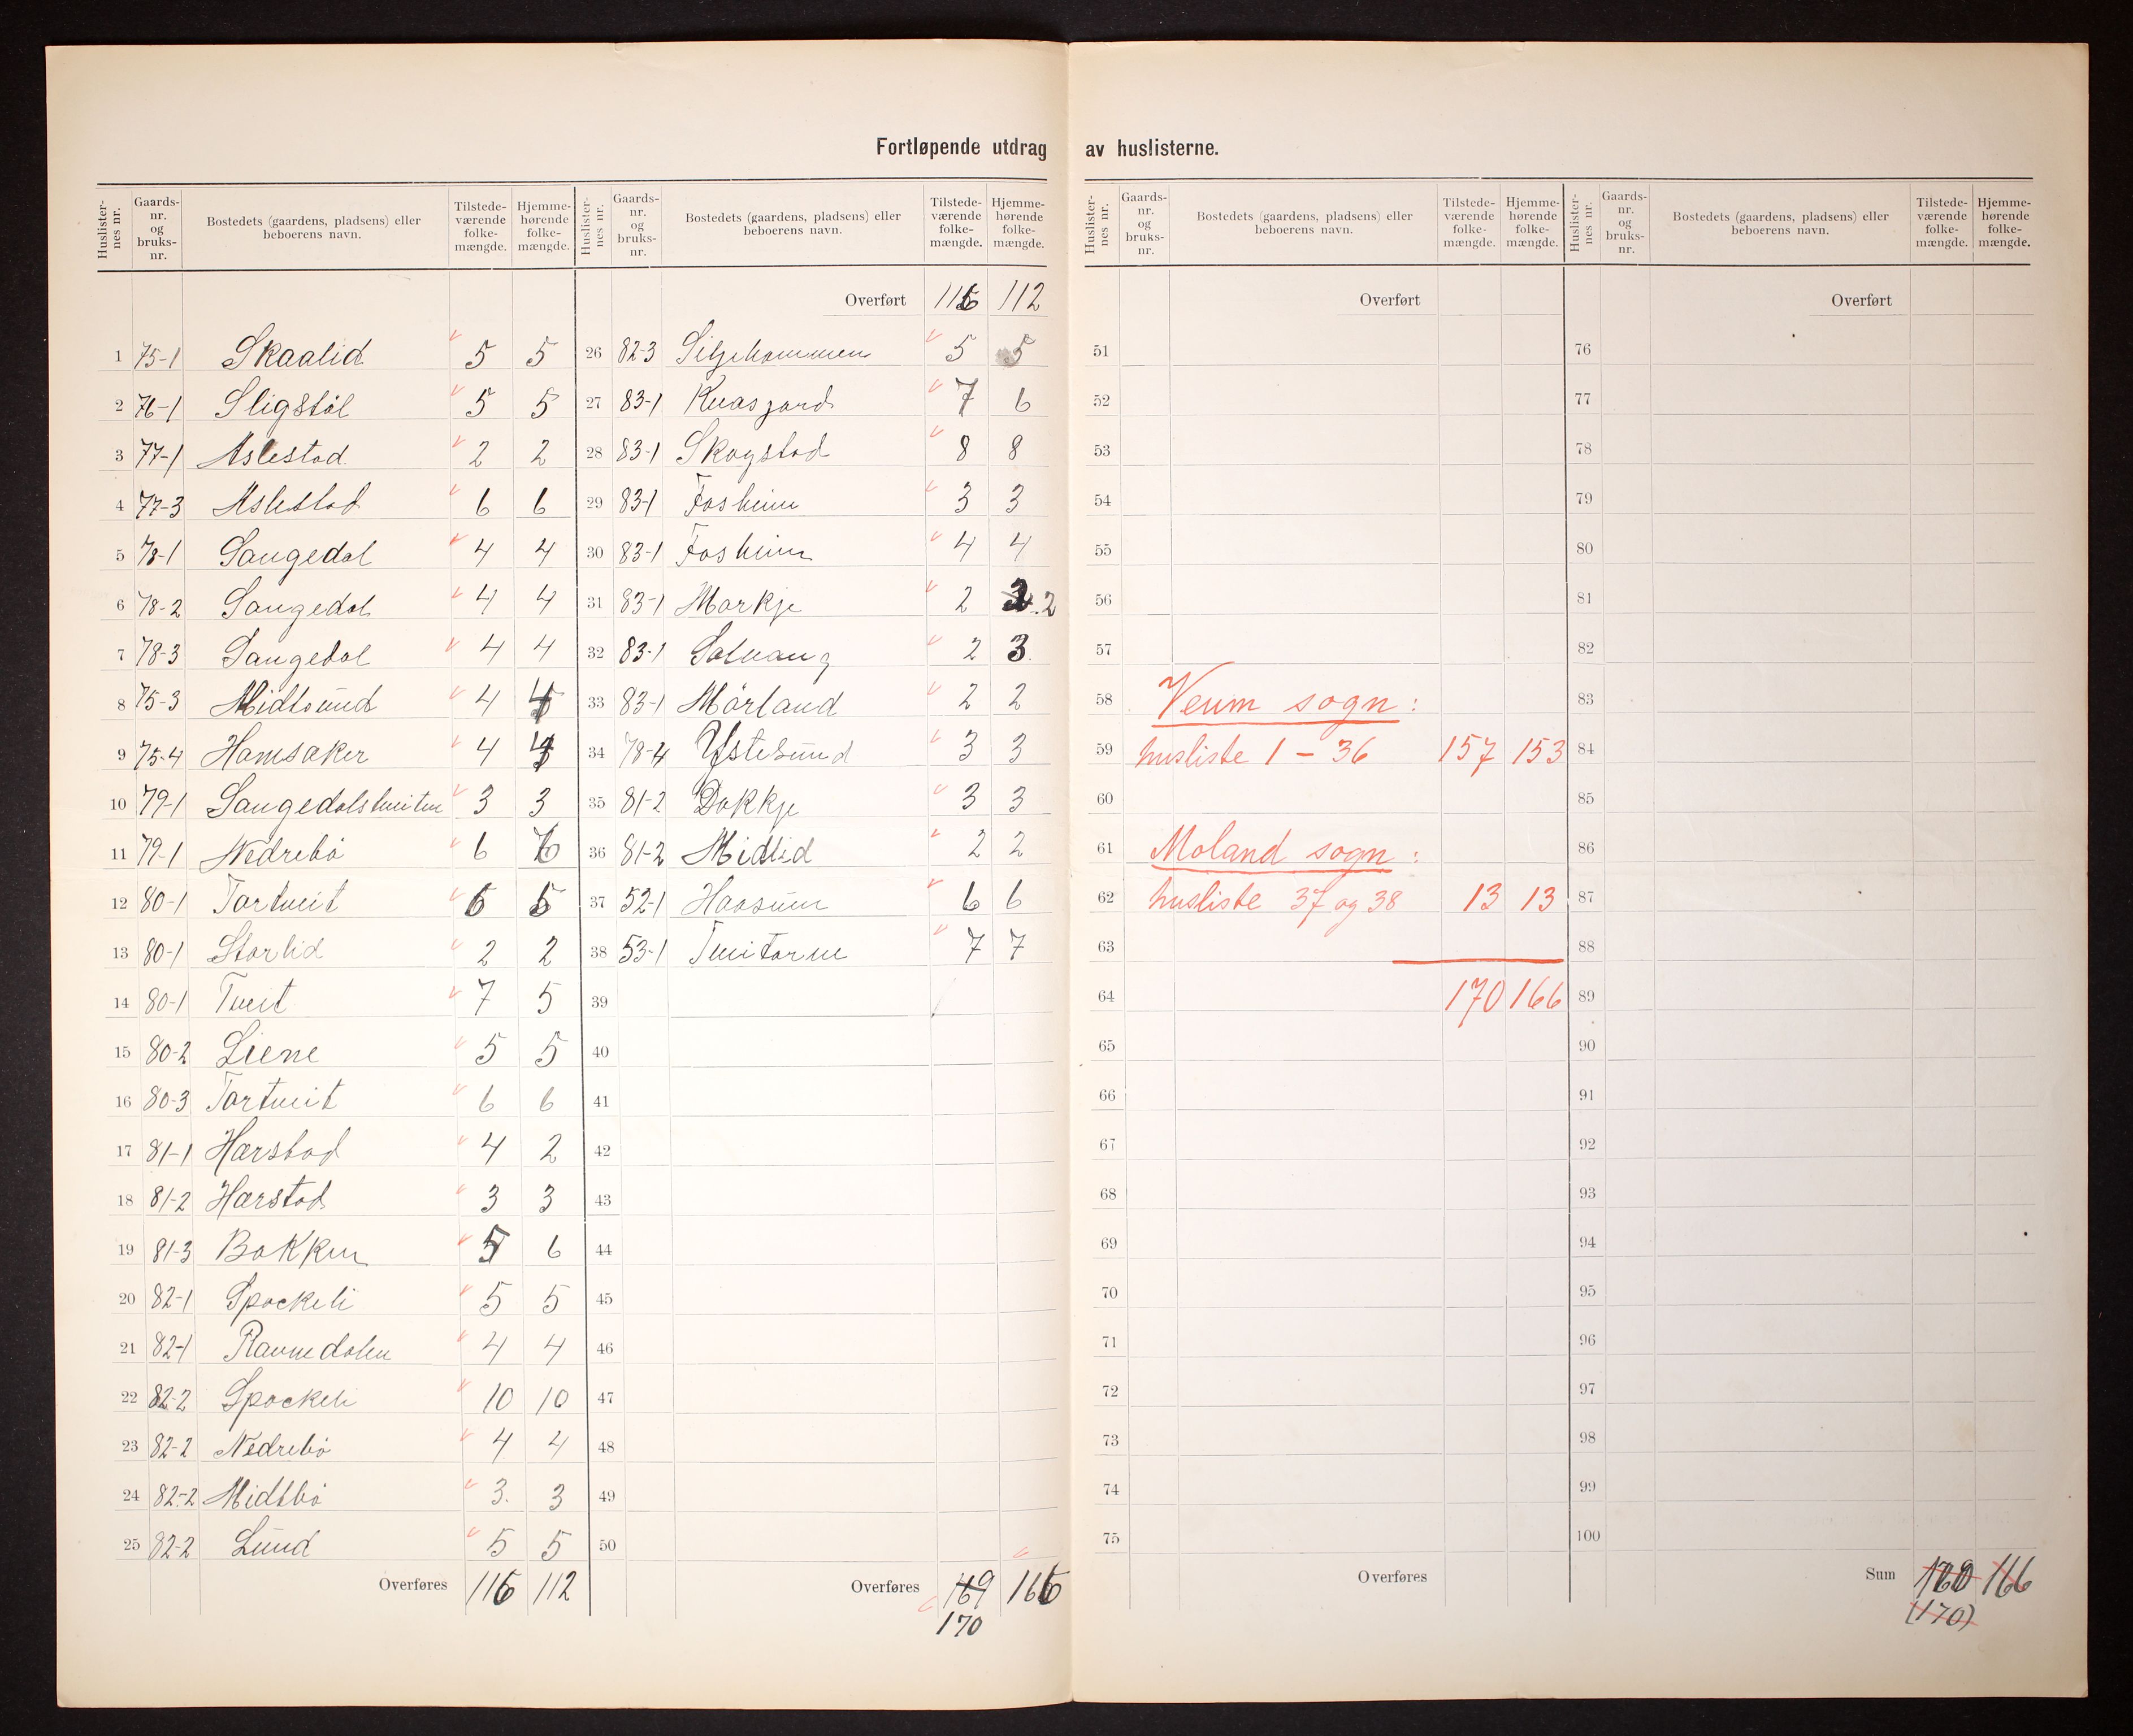 Fortløpende utdrag av huslisterne.
Huslisternes nr. Gaardsnr. og bruksnr. Bostedets (gaardens, pladsens) eller beboerens navn. Tilstedeværende folkemængde. Hjemmehørende folkemængde.
1 75-1 Skaalid 5 5
2 76-1 Sligstöl 5 5
3 77-1 Aslestad 2 2
4 77-3 Aslestad 6 6
5 78-1 Langedal 4 4
6 78-2 Langedal 4 4
7 78-3 Langedal 4 4
8 75-3 Midtsund 4 4
9 75-4 Hamsaker 4
10 79-1 3 3
11 79-1 Nedrebö 6 6
12 80-1 Tortveit 6 5
13 80-1 Storlid 2 2
14 80-1 Tveit 7 5
15 80-2 Liene 5 5
16 80-3 Tortveit 6 6
17 81-1 Harstad 4 2
18 81-2 Harstad 3 3
19 81-3 Bakken 5 6
20 82-1 Spockeli 5 5
21 82-1 Ravnedalen 4 4
22 82-2 Spockeli 10 10
23 82-2 Nedrebö 4 4
24 82-2 Midtbö 3. 3
25 82-2 Lund 5 5
Overføres 116 112
Huslisternes nr. Gaardsnr. og bruksnr. Bostedets (gaardens, pladsens) eller beboerens navn. Tilstedeværende folkemængde. Hjemmehørende folkemængde.
Overført 116 112
26 82-3 Siljehammen 5 5
27 83-1 Kvasjord 7 6
28 83-1 Skogstad 8 8
29 83-1 Fosheim 3 3
30 83-1 Fosheim 4 4
31 83-1 Morkje 2 2
32 83-1 Solvang 2 3
33 83-1 Mörland 2 2
34 78-4 Ystesund 3 3
35 81-2 Dokkje 3 3
36 81-2 Midtlid 2 2
37 52-1 Haasum 6 6
38 53-1 7 7
39
40
41
42
43
44
45
46
47
48
49
50
Overføres 169 166
170
Huslisternes nr. Gaardsnr. og bruksnr. Bostedets (gaardens, pladsens) eller beboerens navn. Tilstedeværende folkemængde. Hjemmehørende folkemængde.
Overført
51
52
53
54
55
56
57
58 Veum sogn:
59 husliste 1 – 36 157 153
60
61 Moland sogn:
62 husliste 37 og 38 13 13
63
64 170 166
65
66
67
68
69
70
71
72
73
74
75
Overføres
Huslisternes nr. Gaardsnr. og bruksnr. Bostedets (gaardens, pladsens) eller beboerens navn. Tilstedeværende folkemængde. Hjemmehørende folkemængde.
Overført
76
77
78
79
80
81
82
83
84
85
86
87
88
89
90
91
92
93
94
95
96
97
98
99
100
Sum 166
(170)